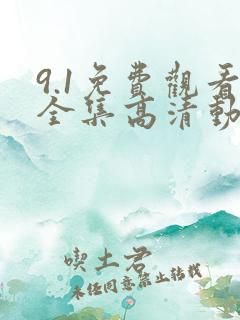 9.1免費觀看
全集高清動
喫土君
未经同意禁止转载